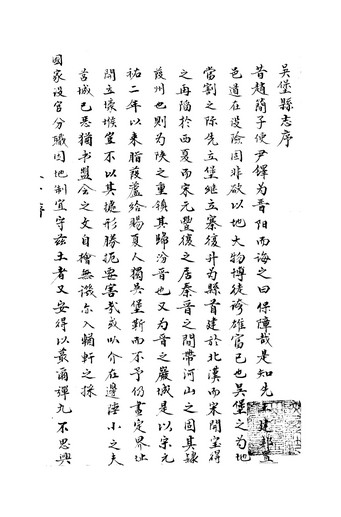 吳堡縣志序
昔趙簡子使尹鐸為晉陽而誨之曰保障哉是知先王建邦置
邑遺在設險固非欲以地大物博徒誇雄富已也吳堡之為地
當割之際先立堡繼立寨後升為縣首建於北漢而宋開寶得
之再陷於西夏而宋元豐復之居秦晉之間帶河山之固其隸
葭州也則為陝之重鎮其歸汾晉也又為晉之嚴城是以宋元
祐二年以來脂葭蘆給賜夏人獨吳堡靳而不予仍書定界址
間立壕堠豈不以其據形勝扼要害哉或以介在邊陸小之夫
莒城已惡猶書盟會之文自檜無譏亦入輶軒之採
國家設官分職因地制宜守茲土者又安得以蕞爾彈丸不思興
序